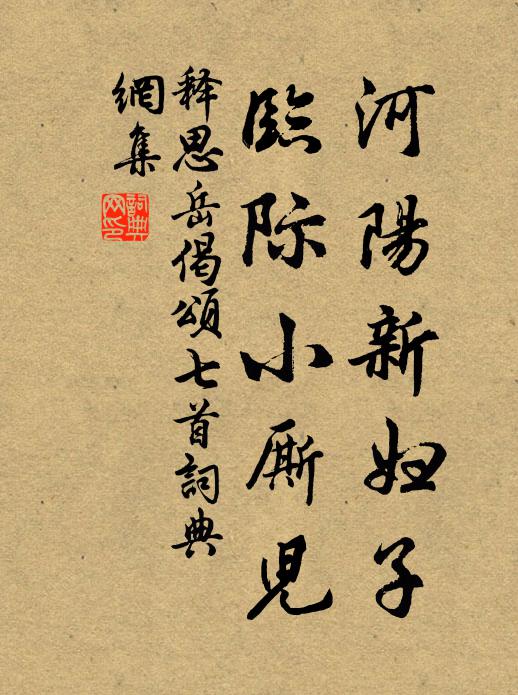 河陽新妇子
臨际小厮兒
释思岳偈頌七首詞典
網集
詞典
网印